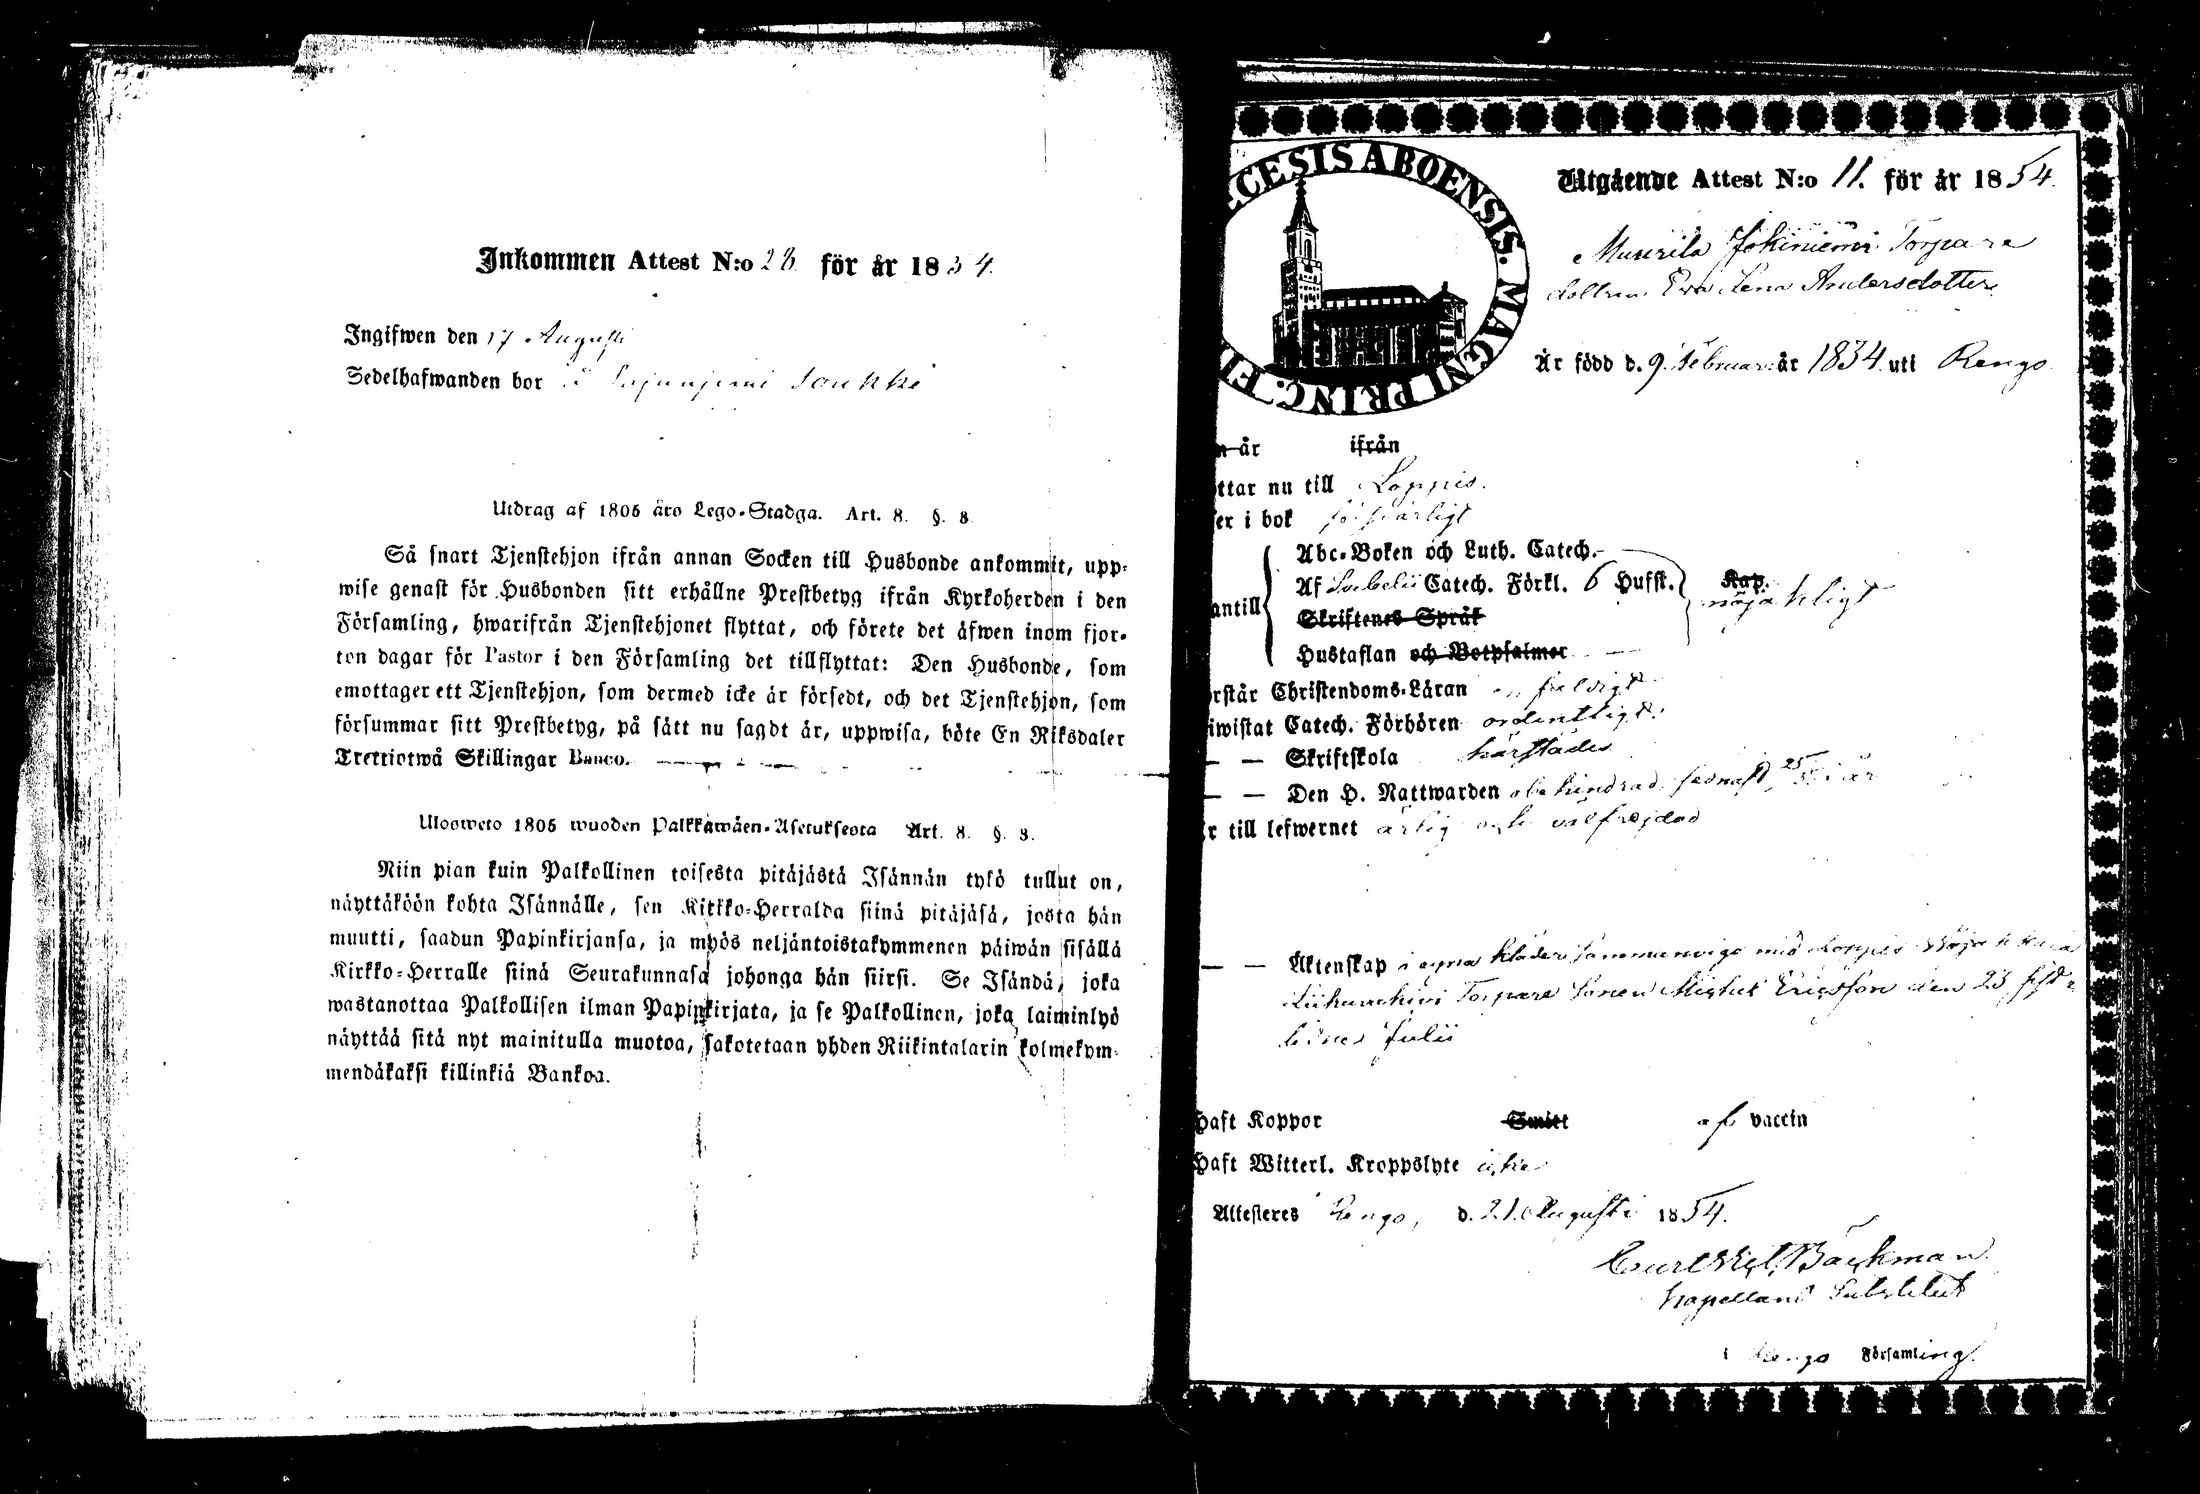 Inkommen Attest N:o 28 för år 1854.
Ingifwen den 17 Augusti
Sedelhafwanden bor
Utdrag af 1805 års Lego-Stadga. Art. 8. §. 8.
Så snart Tjenstehjon ifrån annan Socken till Husbonde ankommit, upp-
wise genast för Husbonden sitt erhållne Prestbetyg ifrån Kyrkoherden i den
Församling, hwarifrån Tjenstehjonet flyttat, och förete det äfwen inom fjor-
ton dagar för Pastor i den Församling det tillflyttat: Den Husbonde, som
emottager ett Tjenstehjon, som dermed icke är försedt, och det Tjenstehjon, som
försummar sitt Prestbetyg, på sätt nu sagdt är, uppwisa, böte En Riksdaler
Trettiotwå Skillingar Banco.
Uloswето 1805 wuoden Palkkawäen-Asetuksesta Art. 8. §. 8.
Niin pian kuin Palkollinen toisesta pitäjästä Isännän tykö tullut on,
näyttäköön kohta Isännälle, sen Kirkko-Herralda siinä pitäjäsä, josta hän
muutti, saadun Papinkirjansa, ja myös neljäntoistakymmenen päiwän sisällä
Kirkko-Herralle siinä Seurakunnasa johonga hän siirsi. Se Isändä, joka
wastanottaa Palkollisen ilman Papinkirjata, ja se Palkollinen, joka laiminlyö
näyttää sitä nyt mainitulla muotoa, sakotetaan yhden Riikintalarin kolmekym-
mendäkaksi killinkiä Bankoa.
CESIS ABOENSIS. MAGNI PRINC. FI
Utgående Attest N:o 11. för år 1854.
Muurila Jokiniemi Torpare
dottren Eva Lena Andersdotter
Är född d. 9 Februari år 1834 uti Rengo
n år ifrån
ttar nu till Loppis.
ser i bok försvarligt
Abc-Boken och Luth. Catech.
Af Svebelii Catech. Förkl. 6 Hufst. Kap. nöjaktligt
antill
Skriftenes Språk
Hustaflan och Botpsalmer
rstår Christendoms-Läran enfaldigt
iwistat Catech. Förhören ordentligt.
— — Skriftskola härstädes
— — Den H. Nattwarden obehindrad, sednast 25 i år
r till lefwernet ärlig och välfrejdad
— — Äktenskap i egna kläder sammanvigd med Loppis
Torpare Sonen Michel Ericsson den 23 sistl.
Julii
Haft Koppor Smitt af vaccin
Haft Witterl. Kroppslyte icke
Attesteres Rengo, d. 21 Augusti 1854.
Bäckman
Kapellans Substitut
i Rengo Församling.